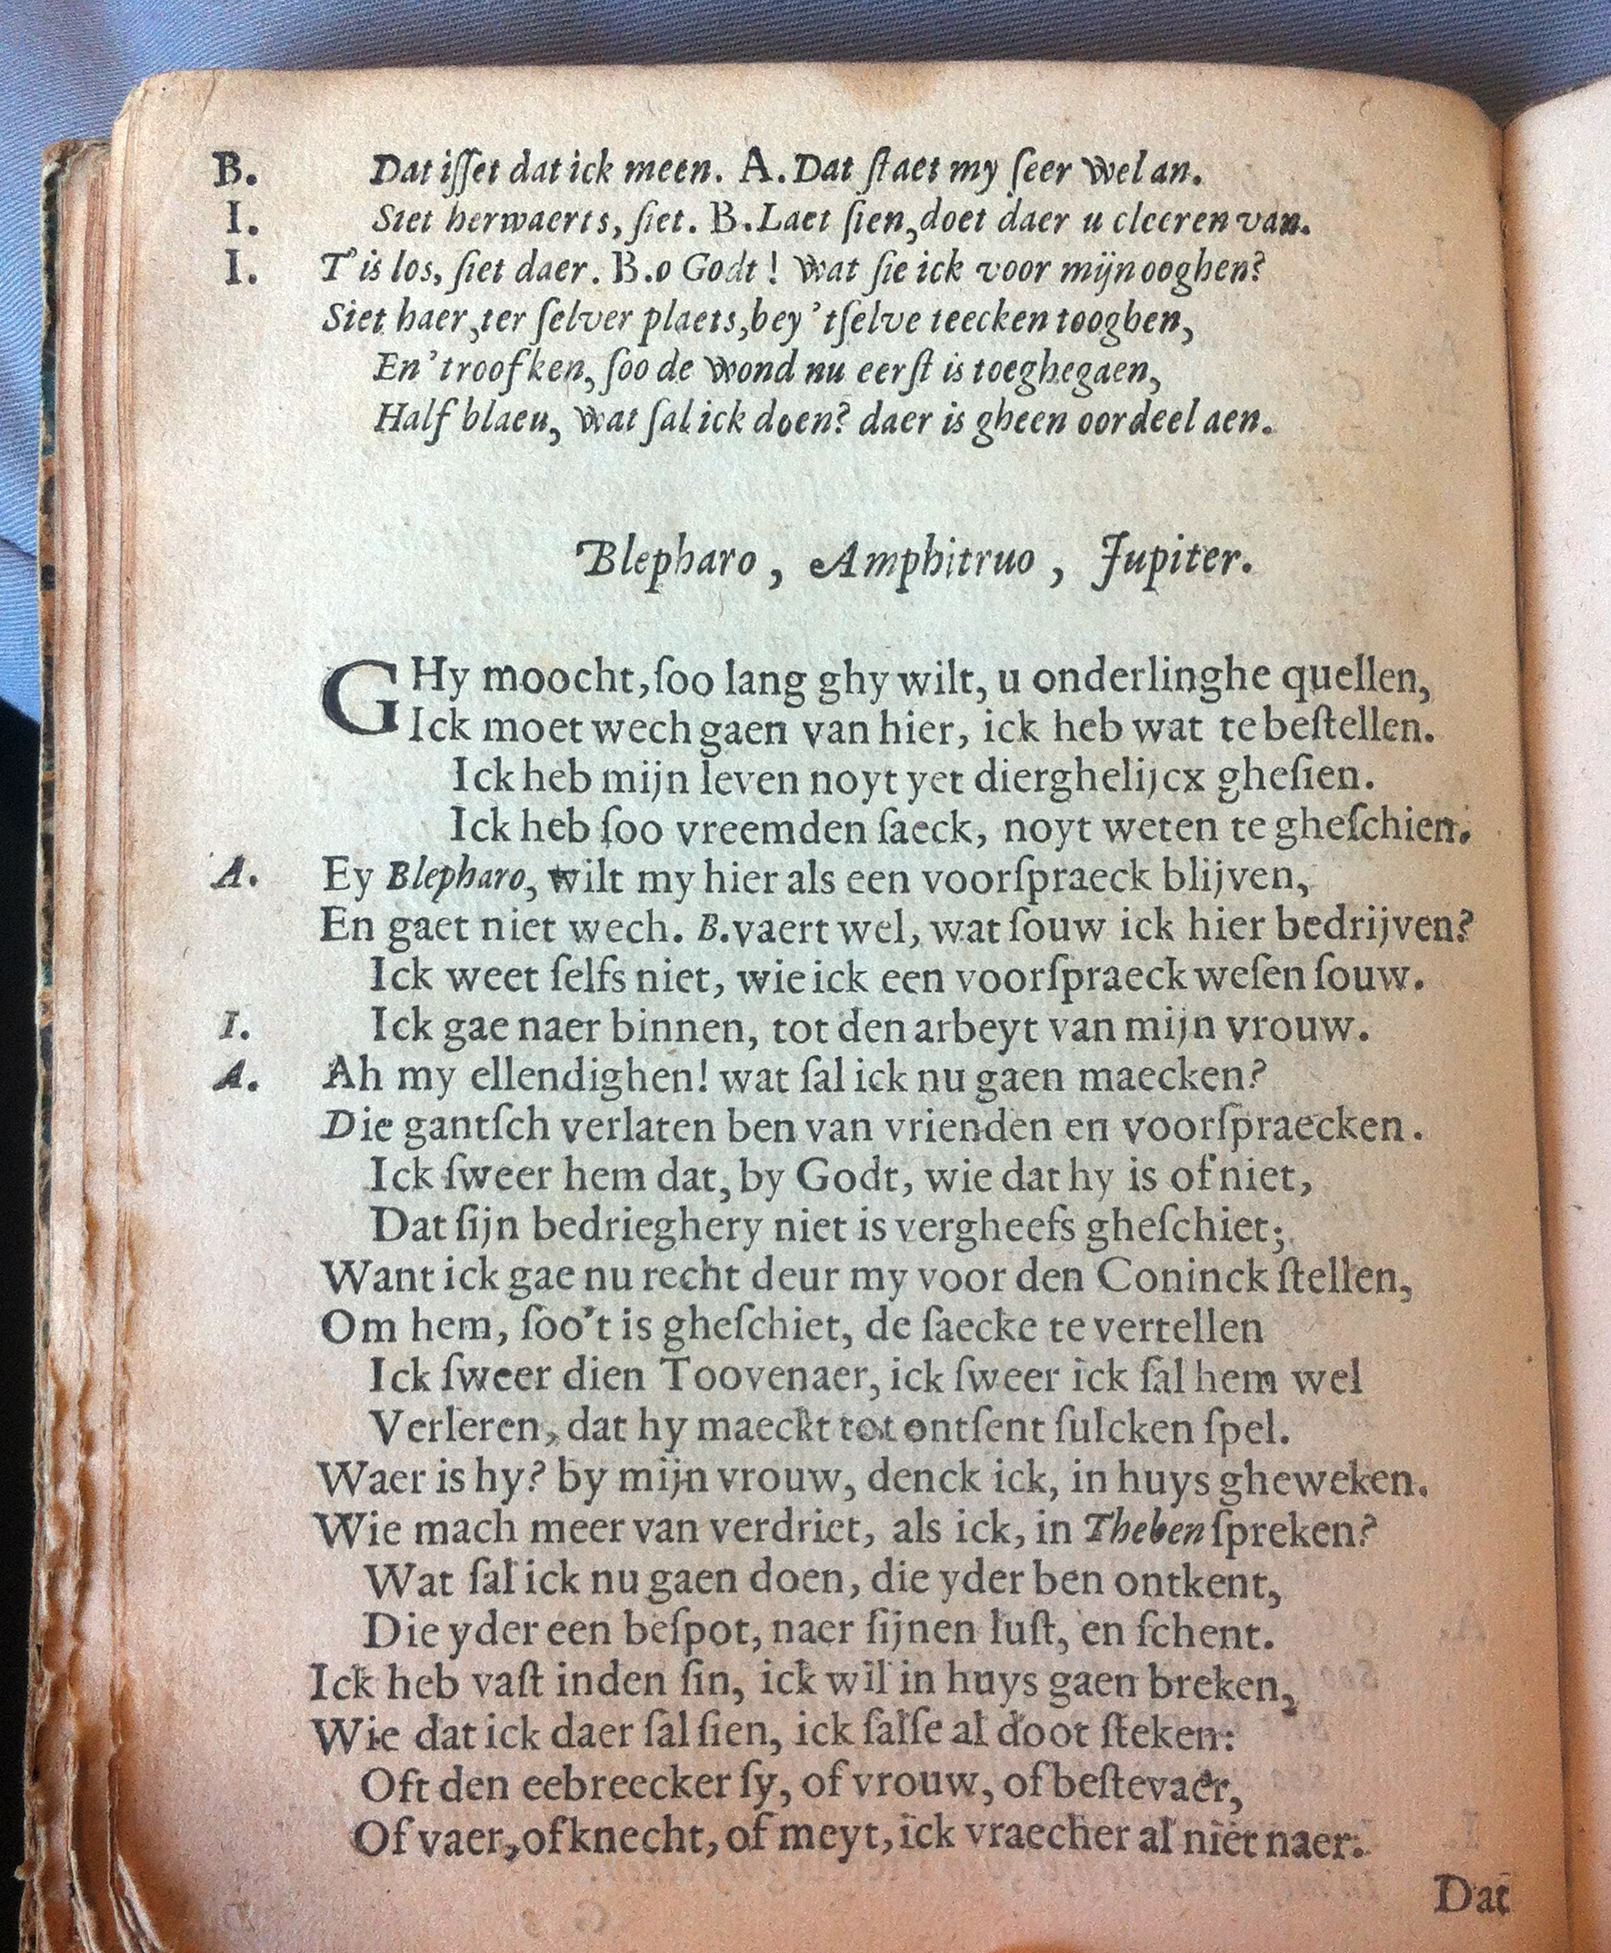 B. Dat iſſet dat ick meen. A. Dat ſtaet my ſeer wel an.
I. Siet herwaerts, ſiet. B. Laet ſien, doet daer u cleeren van.
I. T'is los, ſiet daer. B. o Godt! Wat ſie ick voor mijn ooghen?
Siet haer, ter ſelver plaets, bey 'tſelve teecken tooghen,
En 'troofken, ſoo de wond nu eerſt is toeghegaen,
Half blaeu, wat ſal ick doen? daer is gheen oordeel aen.
Blepharo, Amphitruo, Jupiter.
GHy moocht, ſoo lang ghy wilt, u onderlinghe quellen,
Ick moet wech gaen van hier, ick heb wat te beſtellen.
Ick heb mijn leven noyt yet dierghelijcx gheſien.
Ick heb ſoo vreemden ſaeck, noyt weten te gheſchien.
A. Ey Blepharo, wilt my hier als een voorſpraeck blijven,
En gaet niet wech. B. vaert wel, wat ſouw ick hier bedrijven?
Ick weet ſelfs niet, wie ick een voorſpraeck weſen ſouw.
I. Ick gae naer binnen, tot den arbeyt van mijn vrouw.
A. Ah my ellendighen! wat ſal ick nu gaen maecken?
Die gantſch verlaten ben van vrienden en voorſpraecken.
Ick ſweer hem dat, by Godt, wie dat hy is of niet,
Dat ſijn bedrieghery niet is vergheefs gheſchiet;
Want ick gae nu recht deur my voor den Coninck ſtellen,
Om hem, ſoo't is gheſchiet, de ſaecke te vertellen
Ick ſweer dien Toovenaer, ick ſweer ick ſal hem wel
Verleren, dat hy maeckt tot ontſent ſulcken ſpel.
Waer is hy? by mijn vrouw, denck ick, in huys gheweken.
Wie mach meer van verdriet, als ick, in Theben ſpreken?
Wat ſal ick nu gaen doen, die yder ben ontkent,
Die yder een beſpot, naer ſijnen luſt, en ſchent.
Ick heb vaſt inden ſin, ick wil in huys gaen breken,
Wie dat ick daer ſal ſien, ick ſalſe al doot ſteken:
Oft den eebreecker ſy, of vrouw, of beſtevaer,
Of vaer, of knecht, of meyt, ick vraecher al niet naer.
Dat